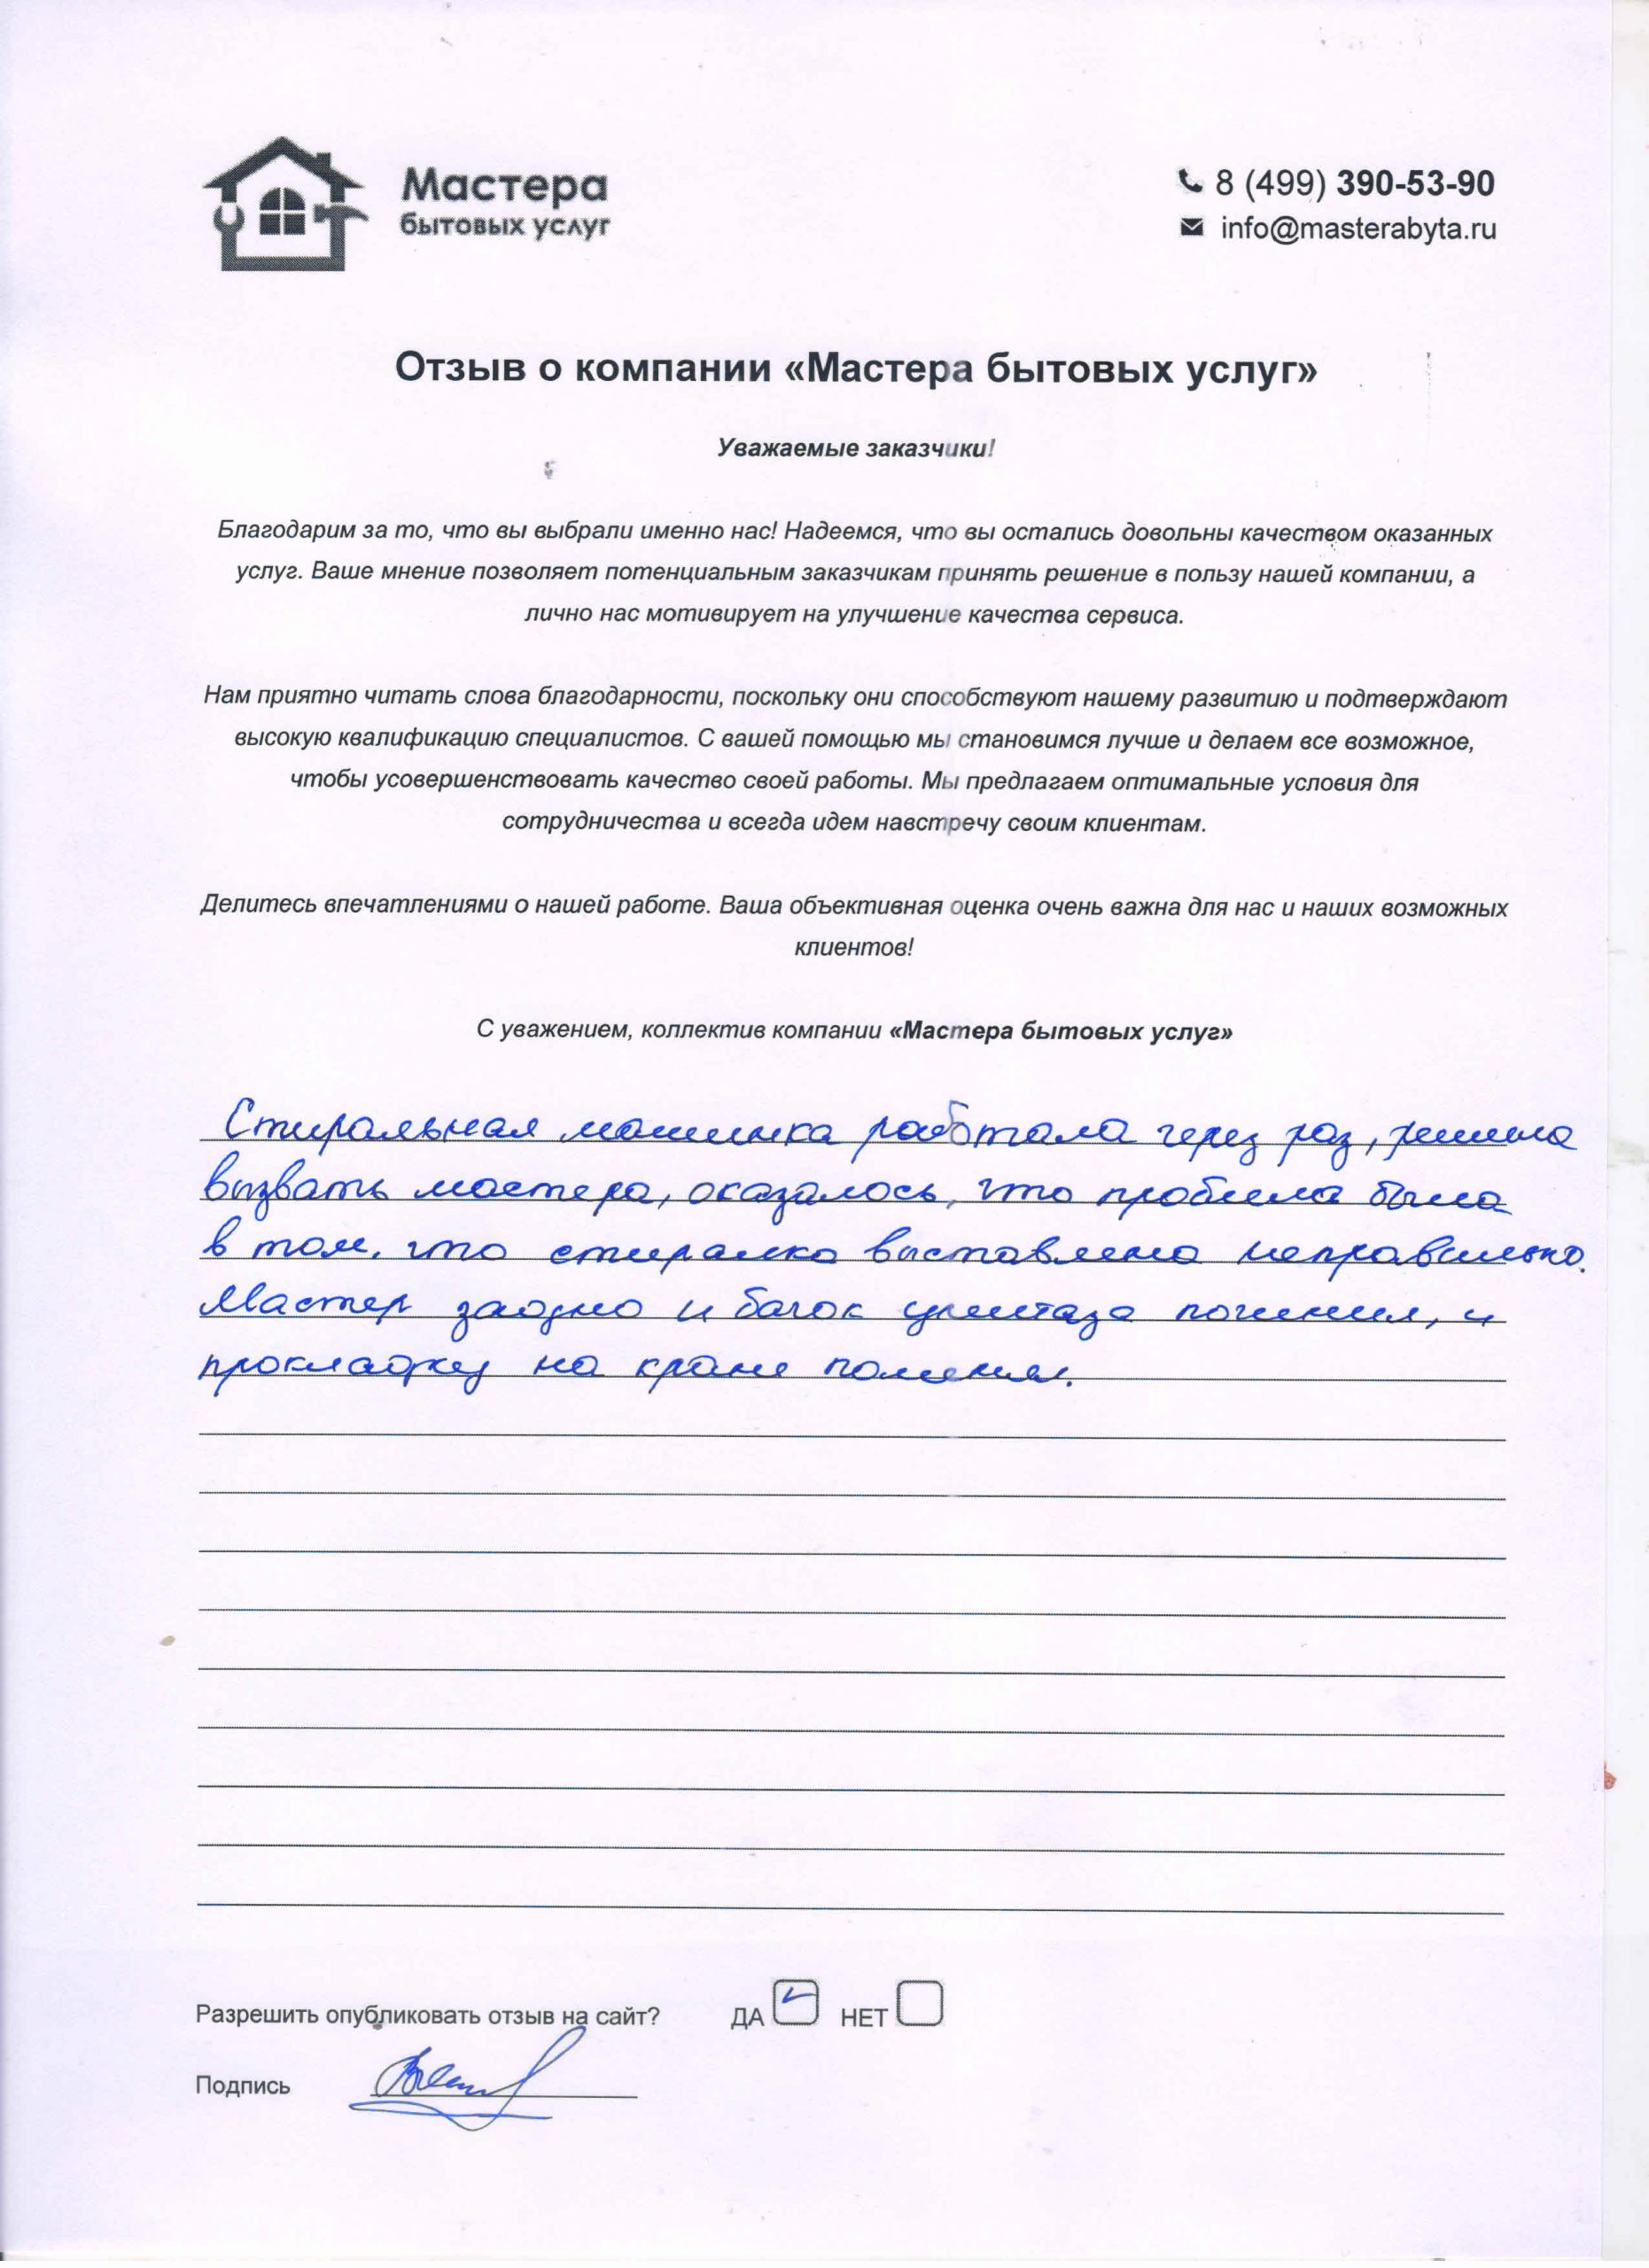 Мастера
бытовых услуг
8 (499) 390-53-90
info@masterabyta.ru
Отзыв о компании «Мастера бытовых услуг»
Уважаемые заказчики!
Благодарим за то, что вы выбрали именно нас! Надеемся, что вы остались довольны качеством оказанных
услуг. Ваше мнение позволяет потенциальным заказчикам принять решение в пользу нашей компании, а
лично нас мотивирует на улучшение качества сервиса.
Нам приятно читать слова благодарности, поскольку они способствуют нашему развитию и подтверждают
высокую квалификацию специалистов. С вашей помощью мы становимся лучше и делаем все возможное,
чтобы усовершенствовать качество своей работы. Мы предлагаем оптимальные условия для
сотрудничества и всегда идем навстречу своим клиентам.
Делитесь впечатлениями о нашей работе. Ваша объективная оценка очень важна для нас и наших возможных
клиентов!
С уважением, коллектив компании «Мастера бытовых услуг»
Стиральная машинка работала через раз, решила
вызвать мастера, оказалось, что проблема была
в том, что стиралка выставлена неправильно.
Мастер заодно и бачок унитаза починил, и
прокладку на кране поменял.
Разрешить опубликовать отзыв на сайт? ДА НЕТ
Подпись